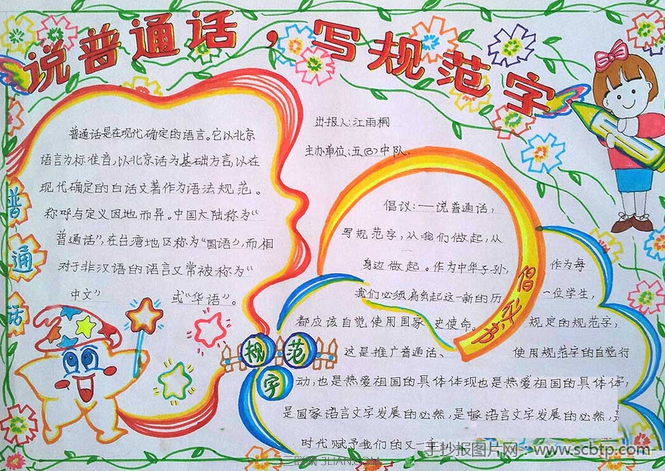 说普通话，写规范字
普通话
普通话是在现代确定的语言。它以北京
语言为标准首,以北京话为基础方言,以在
现代确定的白话文著作为语法规范。
称呼与定义因地而异。中国大陆称为“
普通话”,在台湾地区称为“国语”,而相
对于非汉语的语言又常被称为“
中文” 或“华语”。
出报人:江雨桐
主办单位:五 中队.
倡议:——说普通话,
写规范字,从我们做起,从
身边做起。作为中年子孙,
我们必须肩负起这一新的历
史使命。
倡议书
作为每
一位学生,
都应该自觉使用国家 规定的规范字,
这是推广普通话、 使用规范字的自觉行
动,也是热爱祖国的具体体现也是热爱祖国的具体体,
是国家语言文字发展的必然,是 语言文字发展的必然,是
时代赋予我们的又一
规范字
手抄报图片网 www.scbtp.com
3LIAN.COM